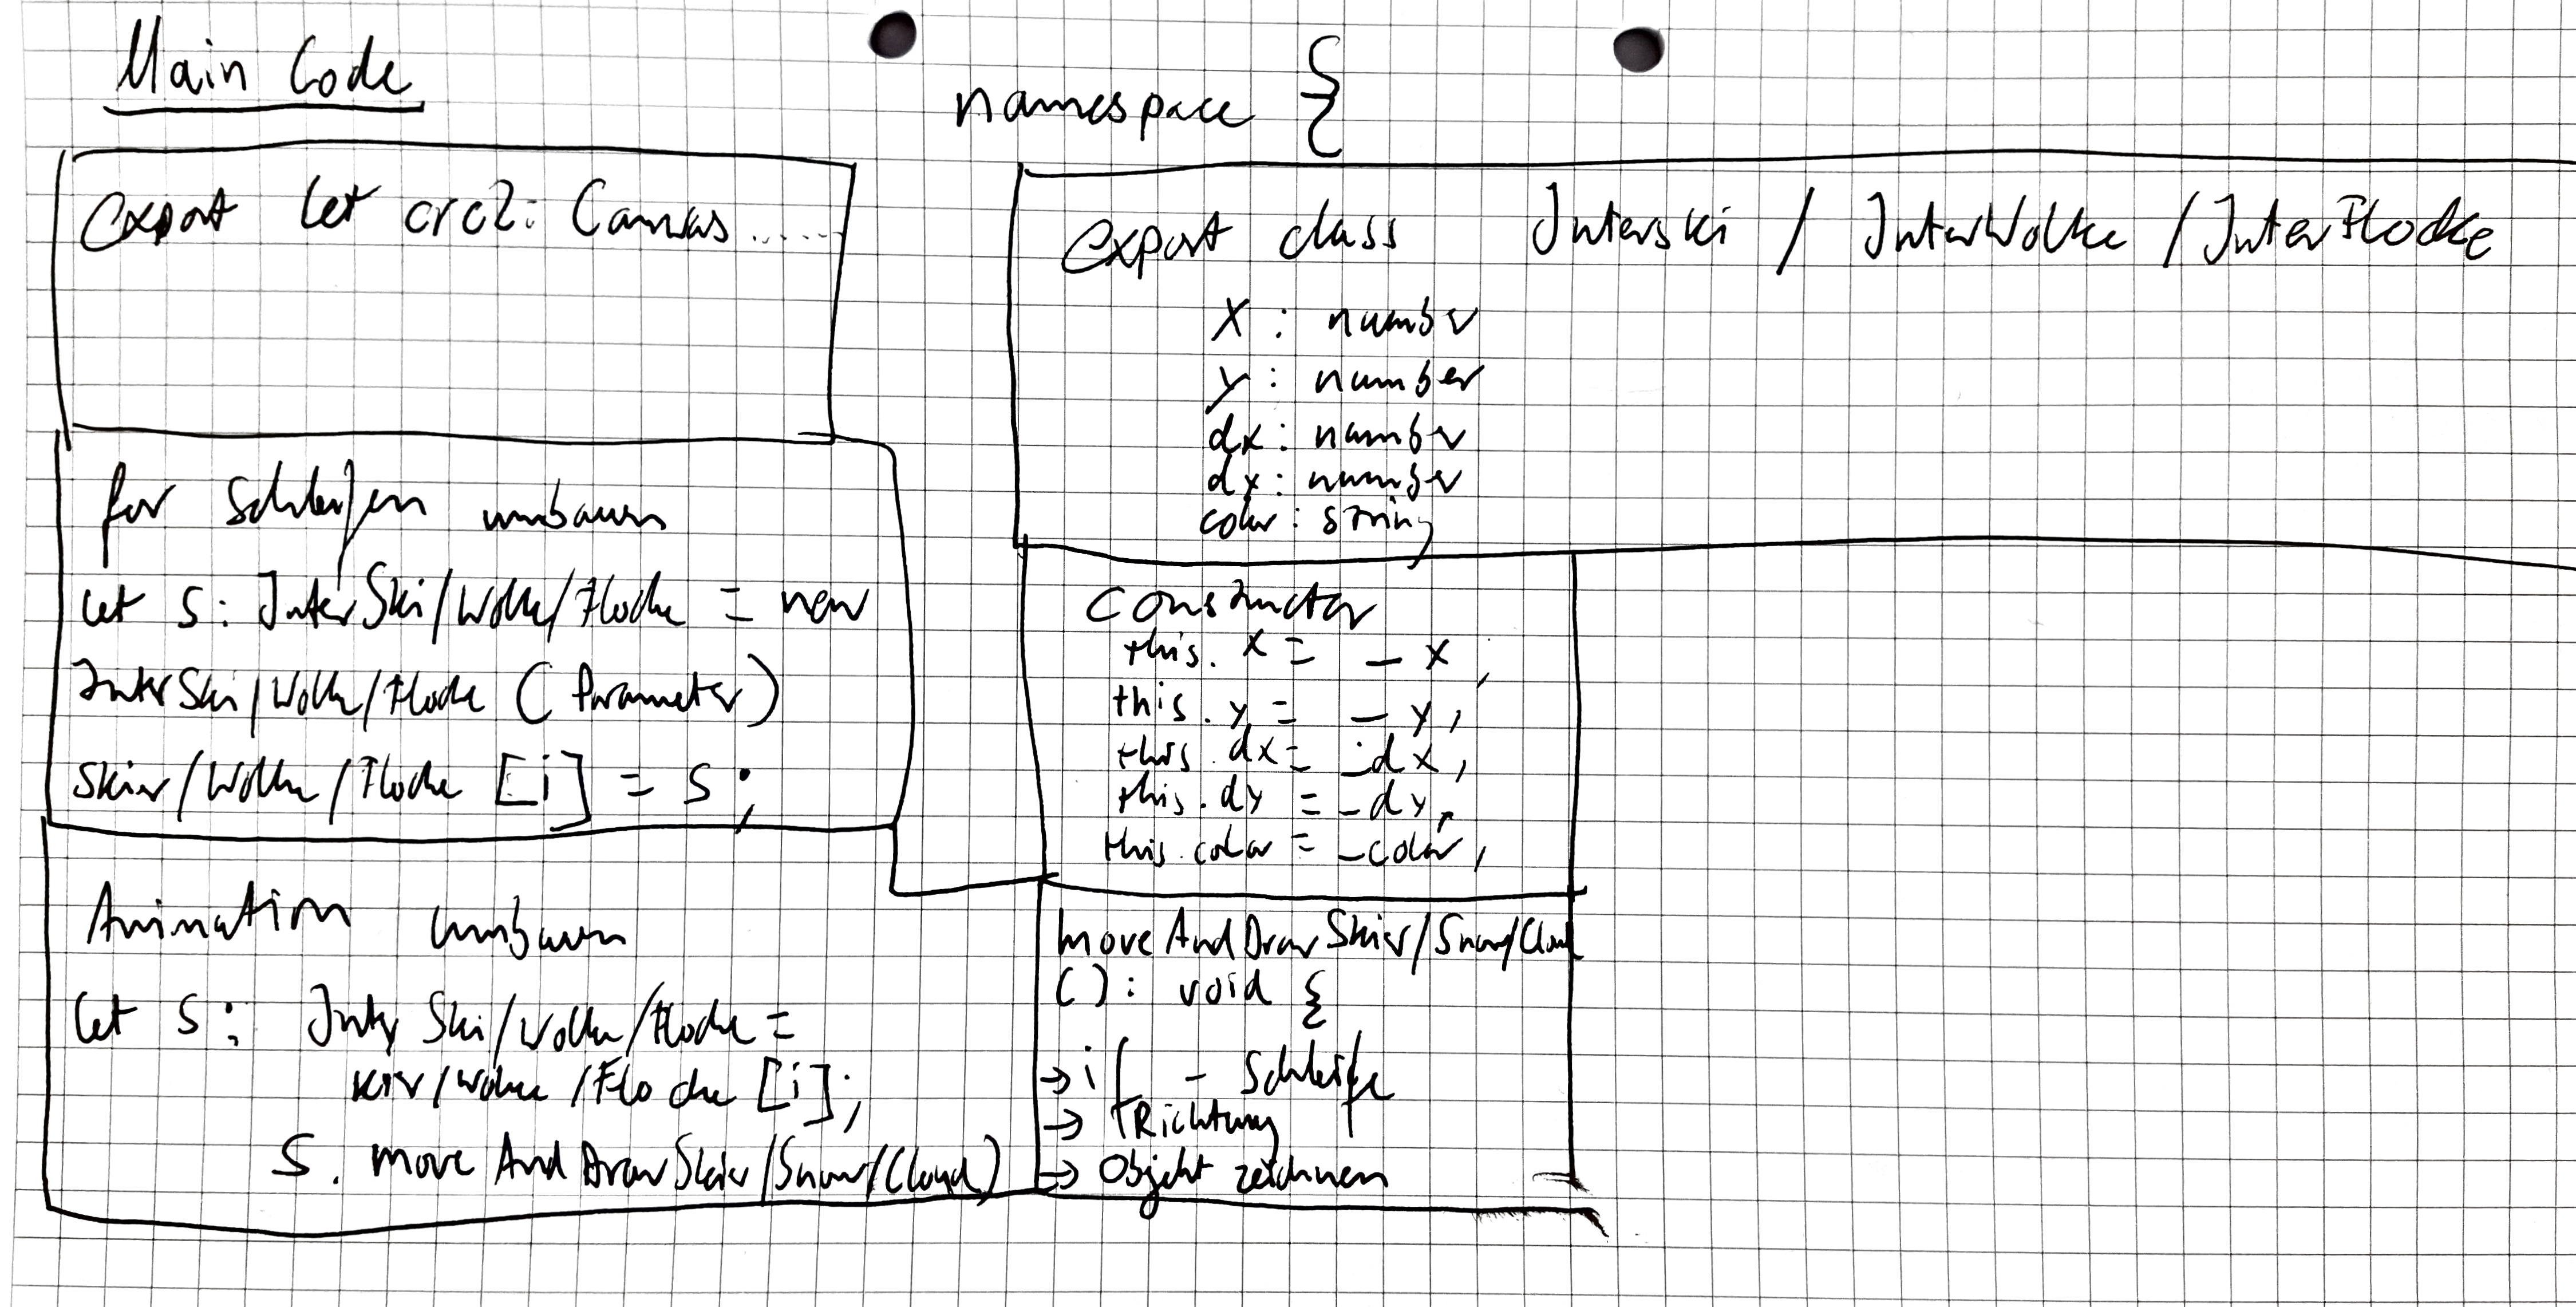 Main Code
export let crc2: Canvas ......
for Schleifen umbauen
let s: InterSki/Wolke/Flocke = new
InterSki/Wolke/Flocke (Parameter)
Skier/Wolke/Flocke [i] = s;
Animation umbauen
let s: InterSki/Wolke/Flocke =
kier/Wolke/Flocke [i];
s. moveAndDrawSkier/Snow/Cloud)
namespace {
export class InterSki / InterWolke / InterFlocke
x : number
y : number
dx : number
dx : number
color : string
Constructor
this. x = _ x ;
this. y = _ y ;
this. dx = _dx ;
this. dy = _dy ;
this. color = _color ;
moveAndDrawSkier/Snow/Cloud
() : void {
→ if - Schleife
→ Richtung
→ Objekt zeichnen